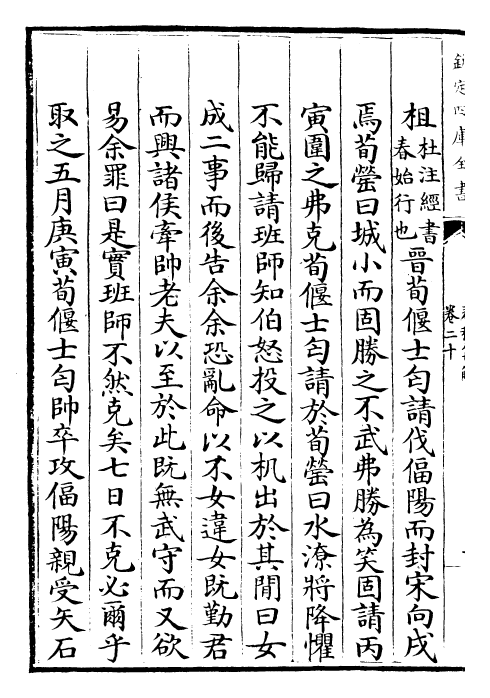 欽定四庫全書
卷二十
柤杜注經書春始行也晉荀偃士匄請伐偪陽而封宋向戌
焉荀罃曰城小而固勝之不武弗勝為笑固請丙
寅圍之弗克荀偃士匄請於荀罃曰水潦將降懼
不能歸請班師知伯怒投之以机出於其閒曰女
成二事而後告余余恐亂命以不女違女既勤君
而興諸侯牽帥老夫以至於此既無武守而又欲
易余罪曰是實班師不然克矣七日不克必爾乎
取之五月庚寅荀偃士匄帥卒攻偪陽親受矢石